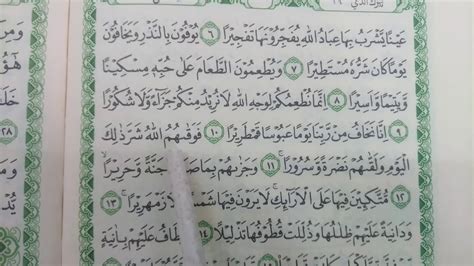 تبرك الذي ٢٩
عَيْنًا يَشْرَبُ بِهَا عِبَادُ اللّٰهِ يُفَجِّرُوْنَهَا تَفْجِيْرًا ۝٦ يُوْفُوْنَ بِالنَّذْرِ وَيَخَافُوْنَ
يَوْمًا كَانَ شَرُّهٗ مُسْتَطِيْرًا ۝٧ وَيُطْعِمُوْنَ الطَّعَامَ عَلٰى حُبِّهٖ مِسْكِيْنًا
وَّيَتِيْمًا وَّاَسِيْرًا ۝٨ اِنَّمَا نُطْعِمُكُمْ لِوَجْهِ اللّٰهِ لَا نُرِيْدُ مِنْكُمْ جَزَآءً وَّلَا شُكُوْرًا
۝٩ اِنَّا نَخَافُ مِنْ رَّبِّنَا يَوْمًا عَبُوْسًا قَمْطَرِيْرًا ۝١٠ فَوَقٰىهُمُ اللّٰهُ شَرَّ ذٰلِكَ
الْيَوْمِ وَلَقّٰىهُمْ نَضْرَةً وَّسُرُوْرًا ۝١١ وَجَزٰىهُمْ بِمَا جَنَّةً وَّحَرِيْرًا
۝١٢ مُتَّكِـِٕيْنَ فِيْهَا عَلَى الْاَرَآئِكِ لَا يَرَوْنَ فِيْهَا شَمْسًا زَمْهَرِيْرًا ۝١٣
وَدَانِيَةً عَلَيْهِمْ ظِلٰلُهَا وَذُلِّلَتْ قُطُوْفُهَا تَذْلِيْلًا ۝١٤ يُطَافُ عَلَيْهِمْ بِاٰنِيَةٍ